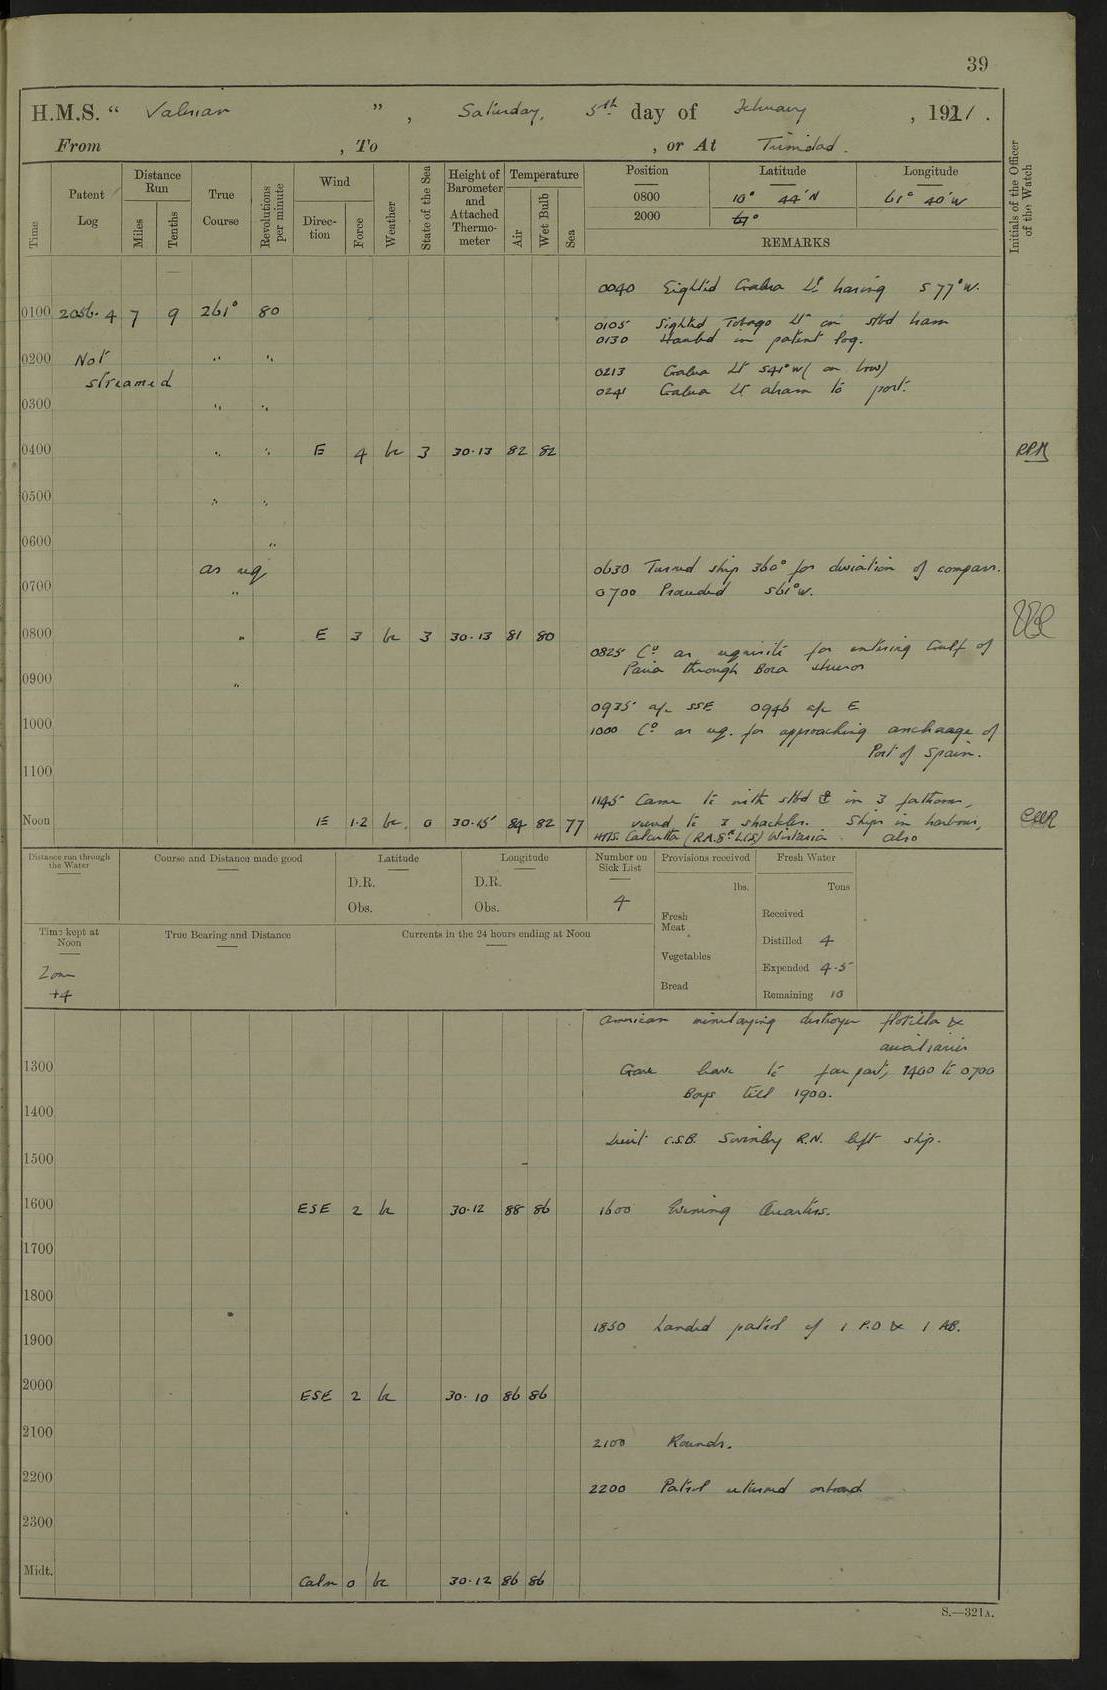 39
H.M.S. “ Valerian ”, Saturday, 5th day of February, 1921.
From , To , or At Trinidad.
Time
Patent Log
Distance Run
Miles
Tenths
True Course
Revolutions per minute
Wind
Direction
Force
Weather
State of the Sea
Height of Barometer and Attached Thermometer
Temperature
Air
Wet Bulb
Sea
Position Latitude Longitude
0800 10° 44' N 61° 40' W
2000
REMARKS
Initials of the Officer of the Watch
0040 Sighted Galera Lt bearing S 77° W.
0100 2056.4 7 9 261° 80
0105 Sighted Tobago Lt on stbd beam
0130 Hauled in patent log.
0200 Not streamed " "
0213 Galera Lt S41°W (on bow)
0241 Galera Lt abeam to port.
0300 " "
0400 " " E 4 bc 3 30.13 82 82 RPM
0500 " "
0600 "
as req
0630 Turned ship 360° for deviation of compass.
0700 "
0700 Proceeded S61°W.
0800 " E 3 bc 3 30.13 81 80
0825 Co as requisite for entering Gulf of
Paria through Boca
0900 "
0935 a/c SSE 0946 a/c E
1000
1000 Co as req. for approaching anchorage of
Port of Spain.
1100
1145 Came to with stbd ⚓ in 3 fathoms,
Noon E 1.2 bc 0 30.15 84 82 77
veered to 3 shackles. Ships in harbour,
HMS. Calcutta (R.A. 8th L.C.S) Wistaria also
Distance run through the Water
Course and Distance made good
Latitude
D.R.
Obs.
Longitude
D.R.
Obs.
Number on Sick List
4
Provisions received
lbs.
Fresh Meat
Vegetables
Bread
Fresh Water
Tons
Received
Distilled 4
Expended 4.5
Remaining 10
Time kept at Noon
Zone
+4
True Bearing and Distance
Currents in the 24 hours ending at Noon
American minelaying destroyer flotilla &
auxiliaries
1300
Gave leave to part, 1400 to 0700
Boys till 1900.
1400
Lieut C.S.B. Swinley R.N. left ship.
1500
1600 ESE 2 bc 30.12 88 86
1600 Evening Quarters.
1700
1800
1850 Landed patrol of 1 P.O & 1 AB.
1900
2000 ESE 2 bc 30.10 86 86
2100
2100 Rounds.
2200
2200 Patrol returned onboard
2300
Midt. Calm 0 bc 30.12 86 86
S.—321A.